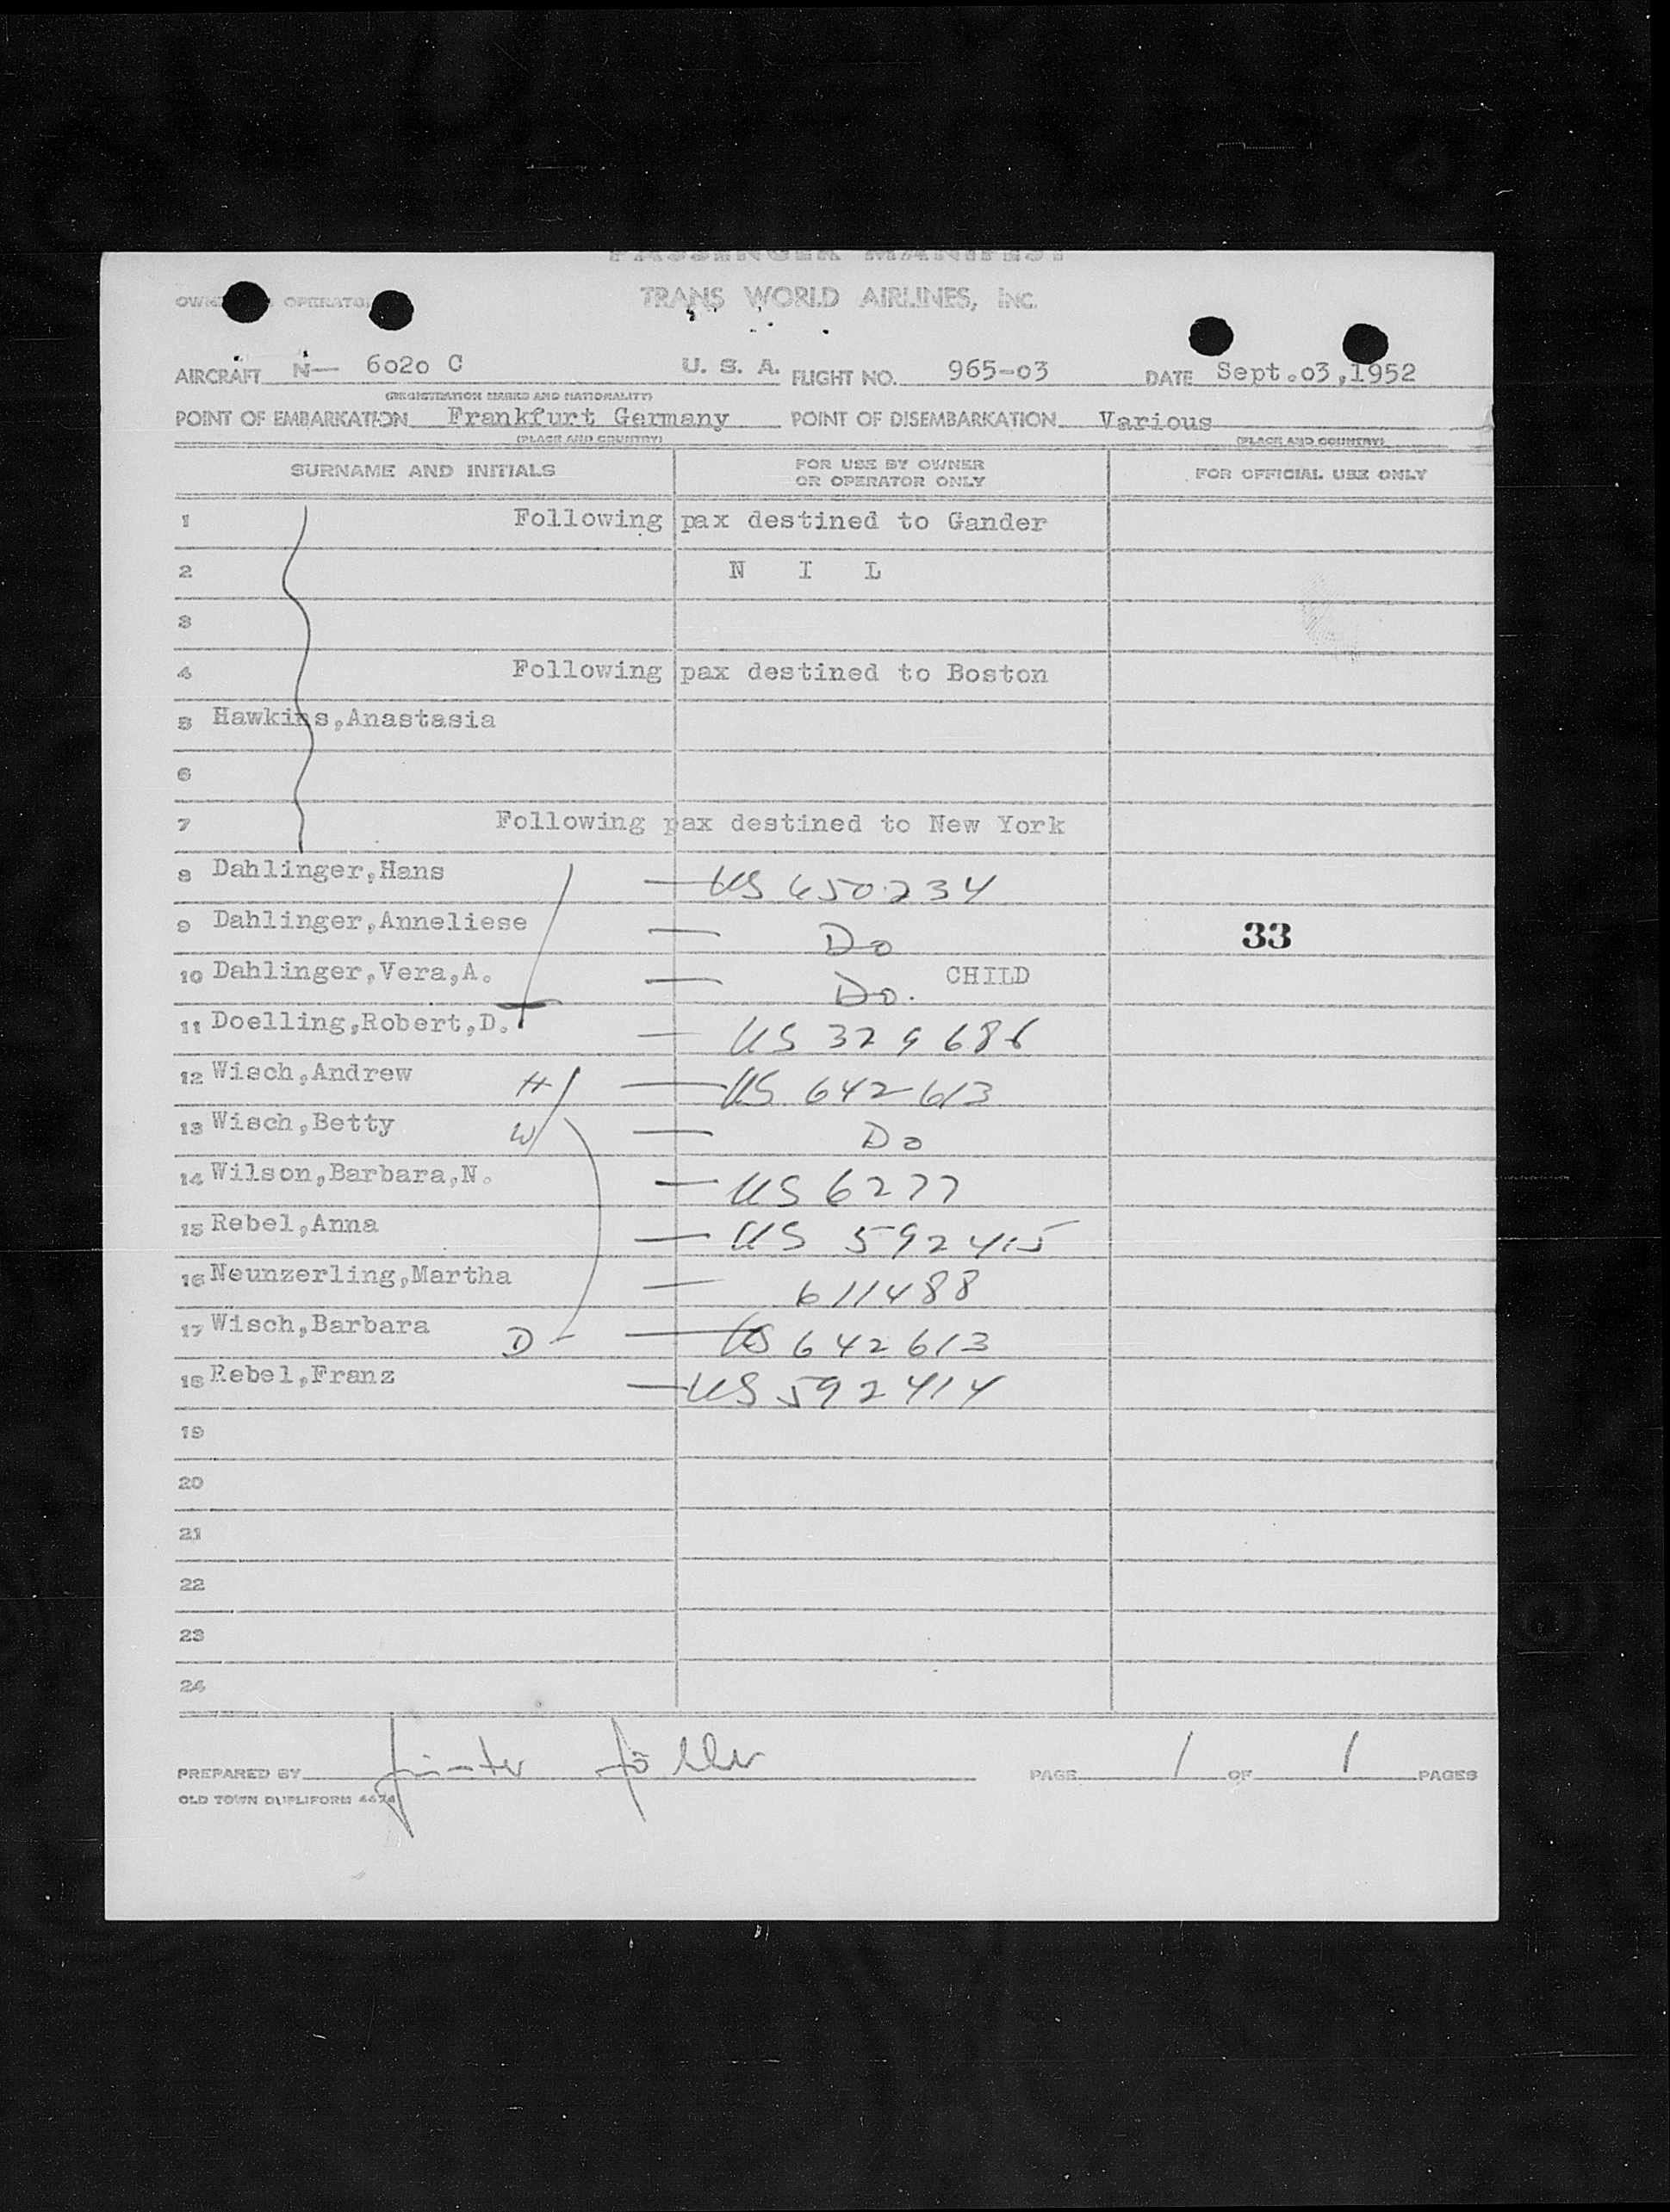 PASSENGER MANIFEST
OWNER OPERATOR TRANS WORLD AIRLINES, INC.
AIRCRAFT N— 6020 C U. S. A. FLIGHT NO. 965-03 DATE Sept.03,1952
(REGISTRATION MARKS AND NATIONALITY)
POINT OF EMBARKATION Frankfurt Germany POINT OF DISEMBARKATION Various
(PLACE AND COUNTRY) (PLACE AND COUNTRY)
SURNAME AND INITIALS FOR USE BY OWNER OR OPERATOR ONLY FOR OFFICIAL USE ONLY
1 Following pax destined to Gander
2 N I L
3
4 Following pax destined to Boston
5 Hawkins,Anastasia
6
7 Following pax destined to New York
8 Dahlinger,Hans — US 650234
9 Dahlinger,Anneliese — Do 33
10 Dahlinger,Vera,A. — Do. CHILD
11 Doelling,Robert,D. — US 329686
12 Wisch,Andrew H — US 642613
13 Wisch,Betty W — Do
14 Wilson,Barbara,N. — US 6277
15 Rebel,Anna — US 592415
16 Neunzerling,Martha — 611488
17 Wisch,Barbara D — US 642613
18 Rebel,Franz — US 592414
19
20
21
22
23
24
PREPARED BY PAGE 1 OF 1 PAGES
OLD TOWN DUPLIFORM